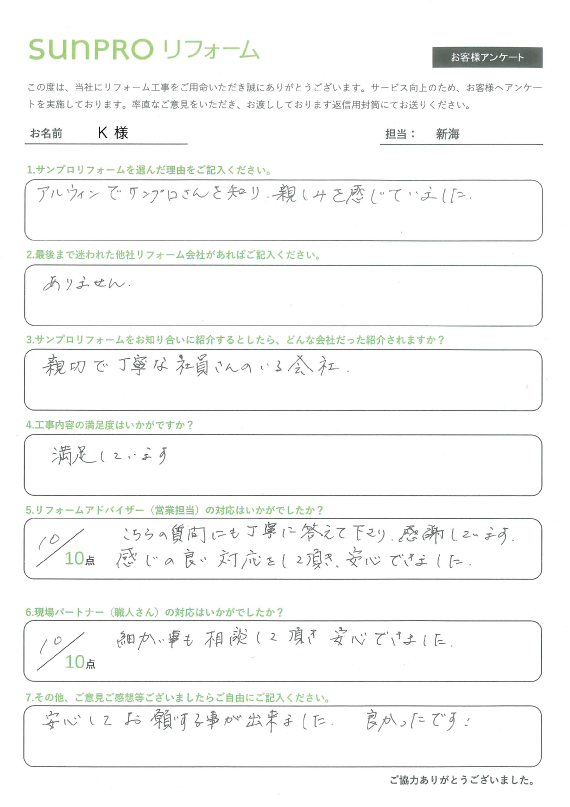 sunpro リフォーム
お客様アンケート
この度は、当社にリフォーム工事をご用命いただき誠にありがとうございます。サービス向上のため、お客様へアンケー
トを実施しております。率直なご意見をいただき、お渡ししております返信用封筒にてお送りください。
お名前 K 様 担当： 新海
1.サンプロリフォームを選んだ理由をご記入ください。
アルウィンでサンプロさんを知り、親しみを感じていました。
2.最後まで迷われた他社リフォーム会社があればご記入ください。
ありません。
3.サンプロリフォームをお知り合いに紹介するとしたら、どんな会社だった紹介されますか？
親切で丁寧な社員さんのいる会社。
4.工事内容の満足度はいかがですか？
満足しています
5.リフォームアドバイザー（営業担当）の対応はいかがでしたか？
10/10点
こちらの質問にも丁寧に答えて下さり、感謝しています。
感じの良い対応をして頂き、安心できました。
6.現場パートナー（職人さん）の対応はいかがでしたか？
10/10点
細かい事も相談して頂き安心できました。
7.その他、ご意見ご感想等ございましたらご自由にご記入ください。
安心してお願いする事が出来ました。 良かったです！
ご協力ありがとうございました。